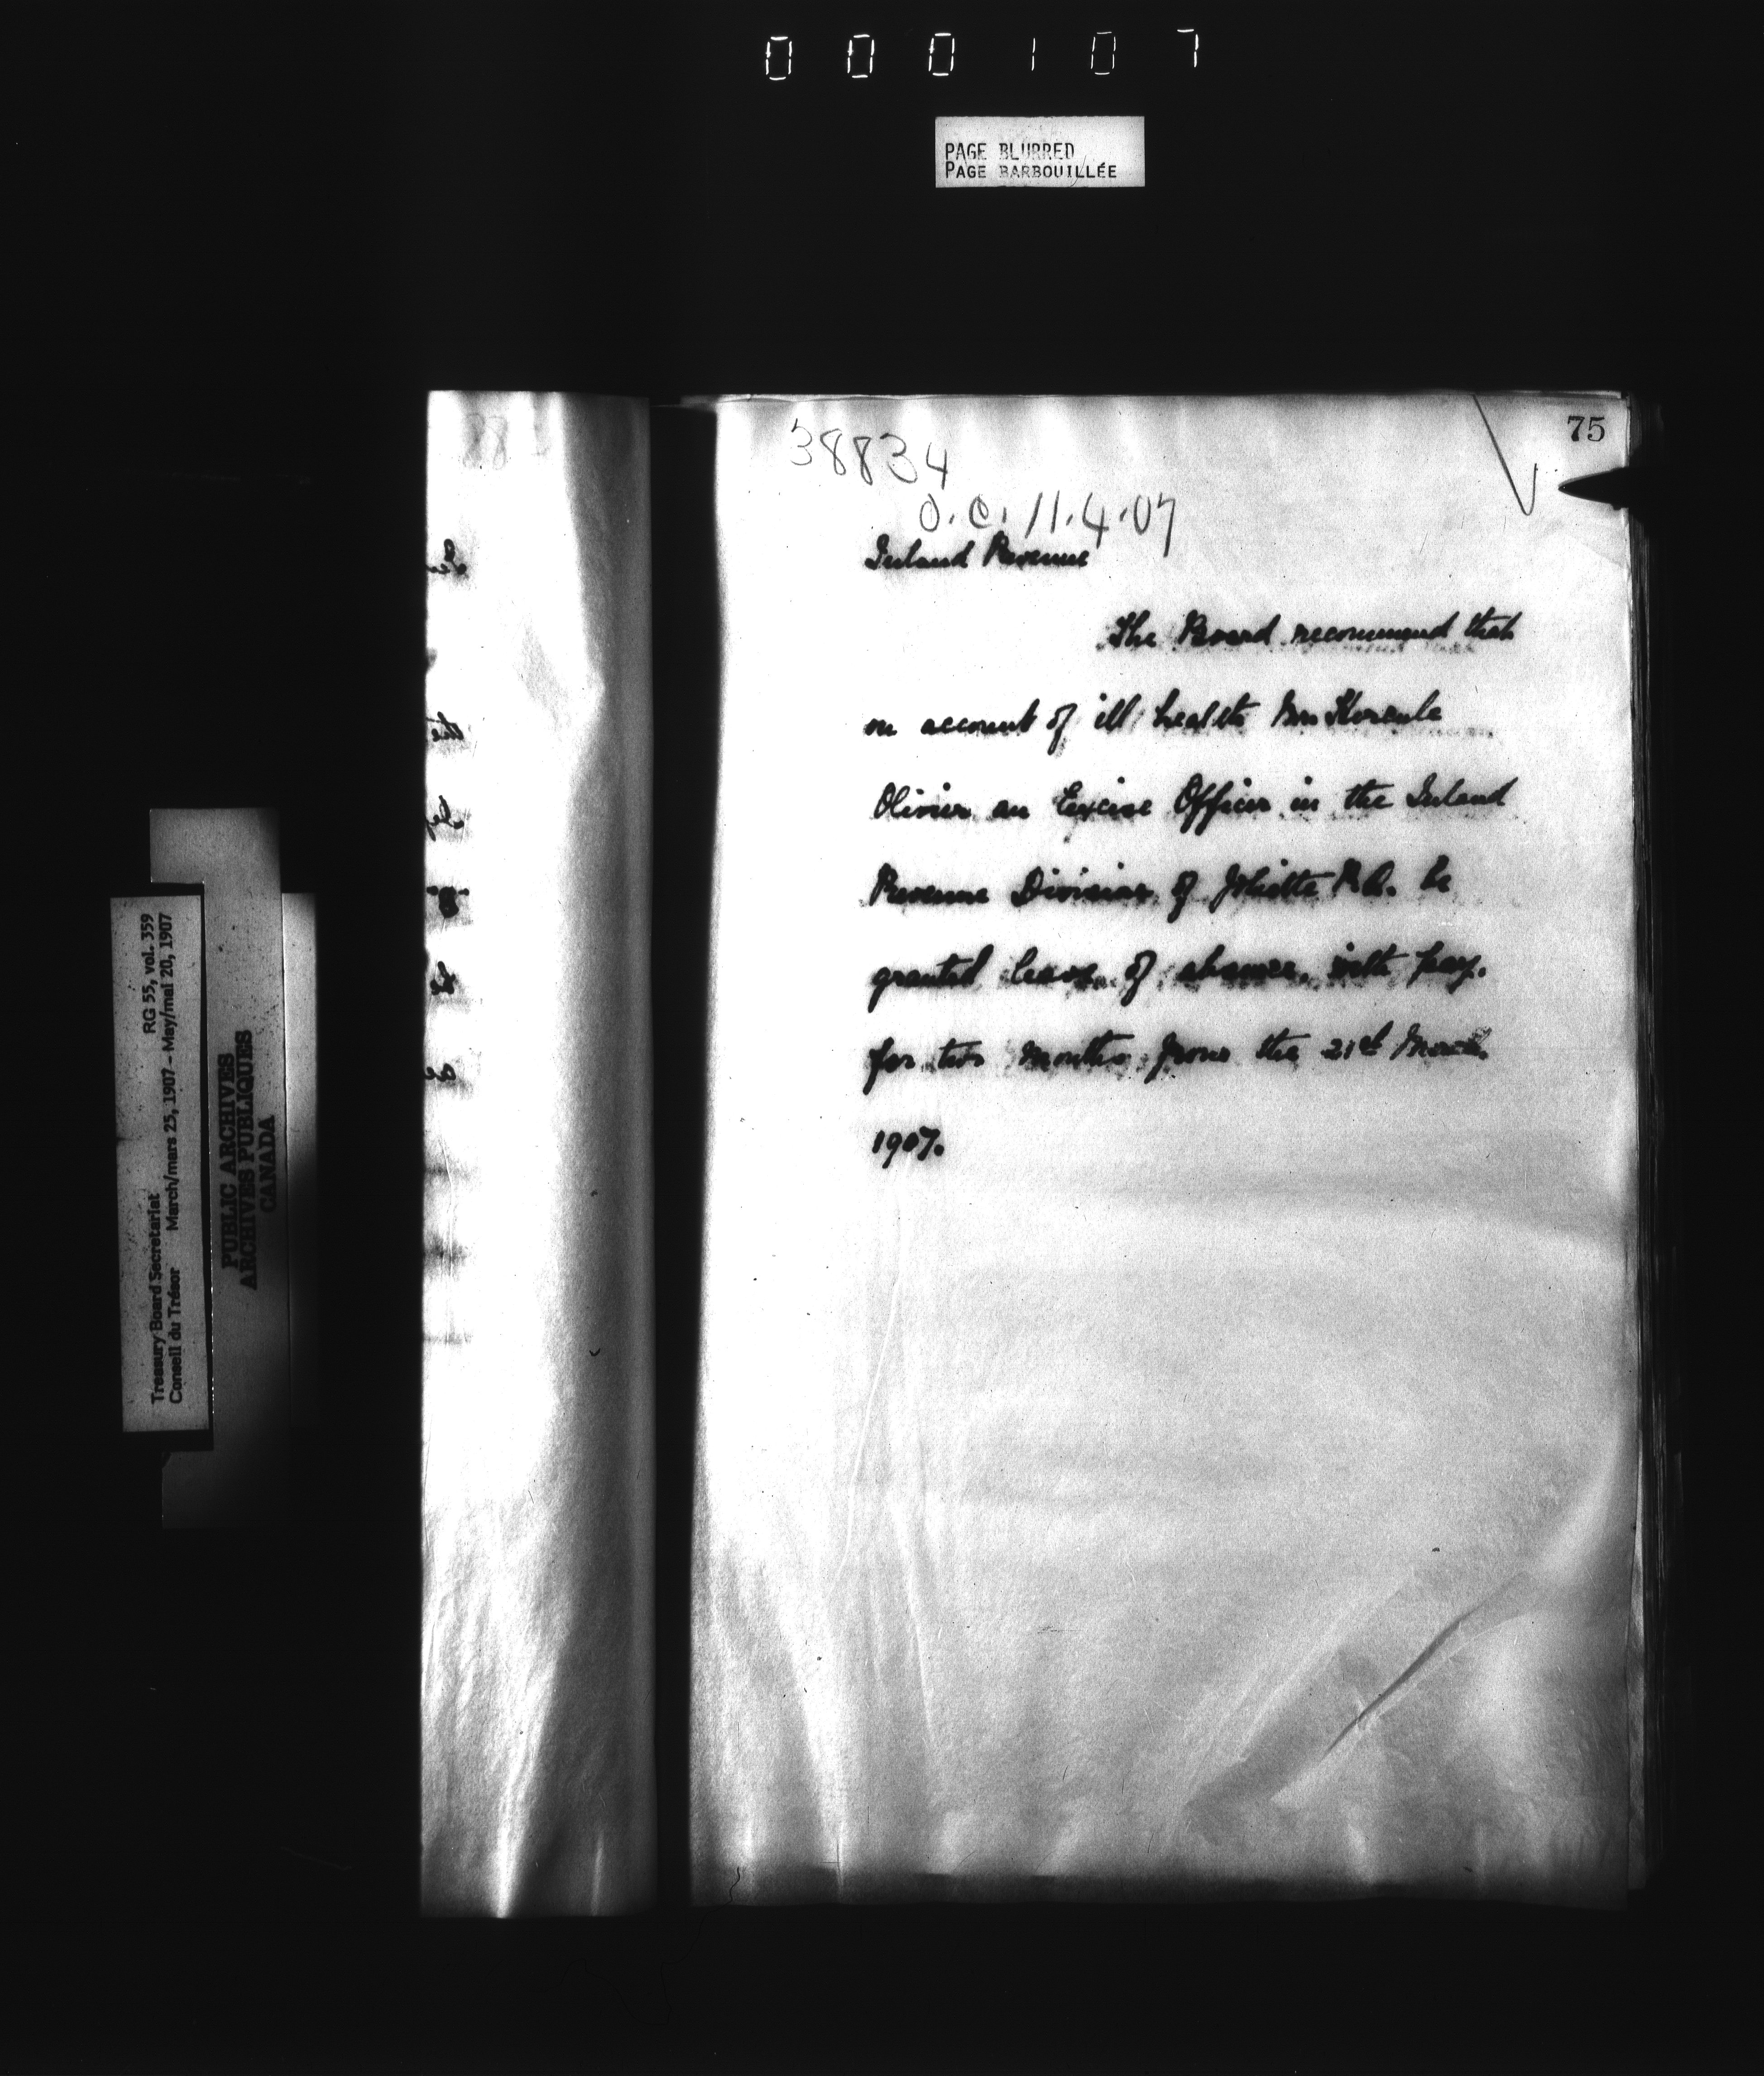 000107
PAGE BLURRED
PAGE BARBOUILLÉE
75
38834
O.C. 11.4.07
Inland Revenue
The Board recommend that
on account of ill health Mr. Hercule
Olivier an Excise Officer in the Inland
Revenue Division of Joliette P.Q. be
granted leave of absence, with pay,
for two months from the 21st March
1907.
Treasury Board Secretariat RG 55, vol. 359
Conseil du Trésor March/mars 25, 1907 – May/mai 20, 1907
PUBLIC ARCHIVES
ARCHIVES PUBLIQUES
CANADA